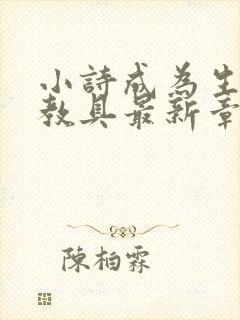 小詩成為生
教具最新章
陳柏霖